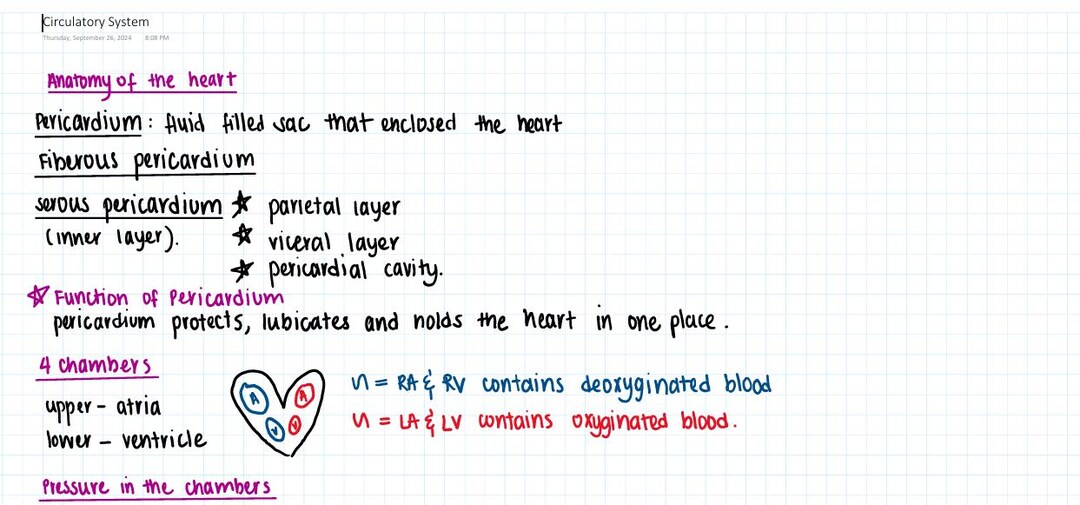 Circulatory System
Thursday, September 26, 2024 8:08 PM
Anatomy of the heart
Pericardium: fluid filled sac that enclosed the heart
Fiberous pericardium
serous pericardium ☆ parietal layer
(inner layer). ☆ viceral layer
☆ pericardial cavity.
☆ Function of Pericardium
pericardium protects, lubicates and holds the heart in one place.
4 chambers
A A
n = RA & RV contains deoxyginated blood
upper - atria
V V
n = LA & LV contains oxyginated blood.
lower - ventricle
Pressure in the chambers